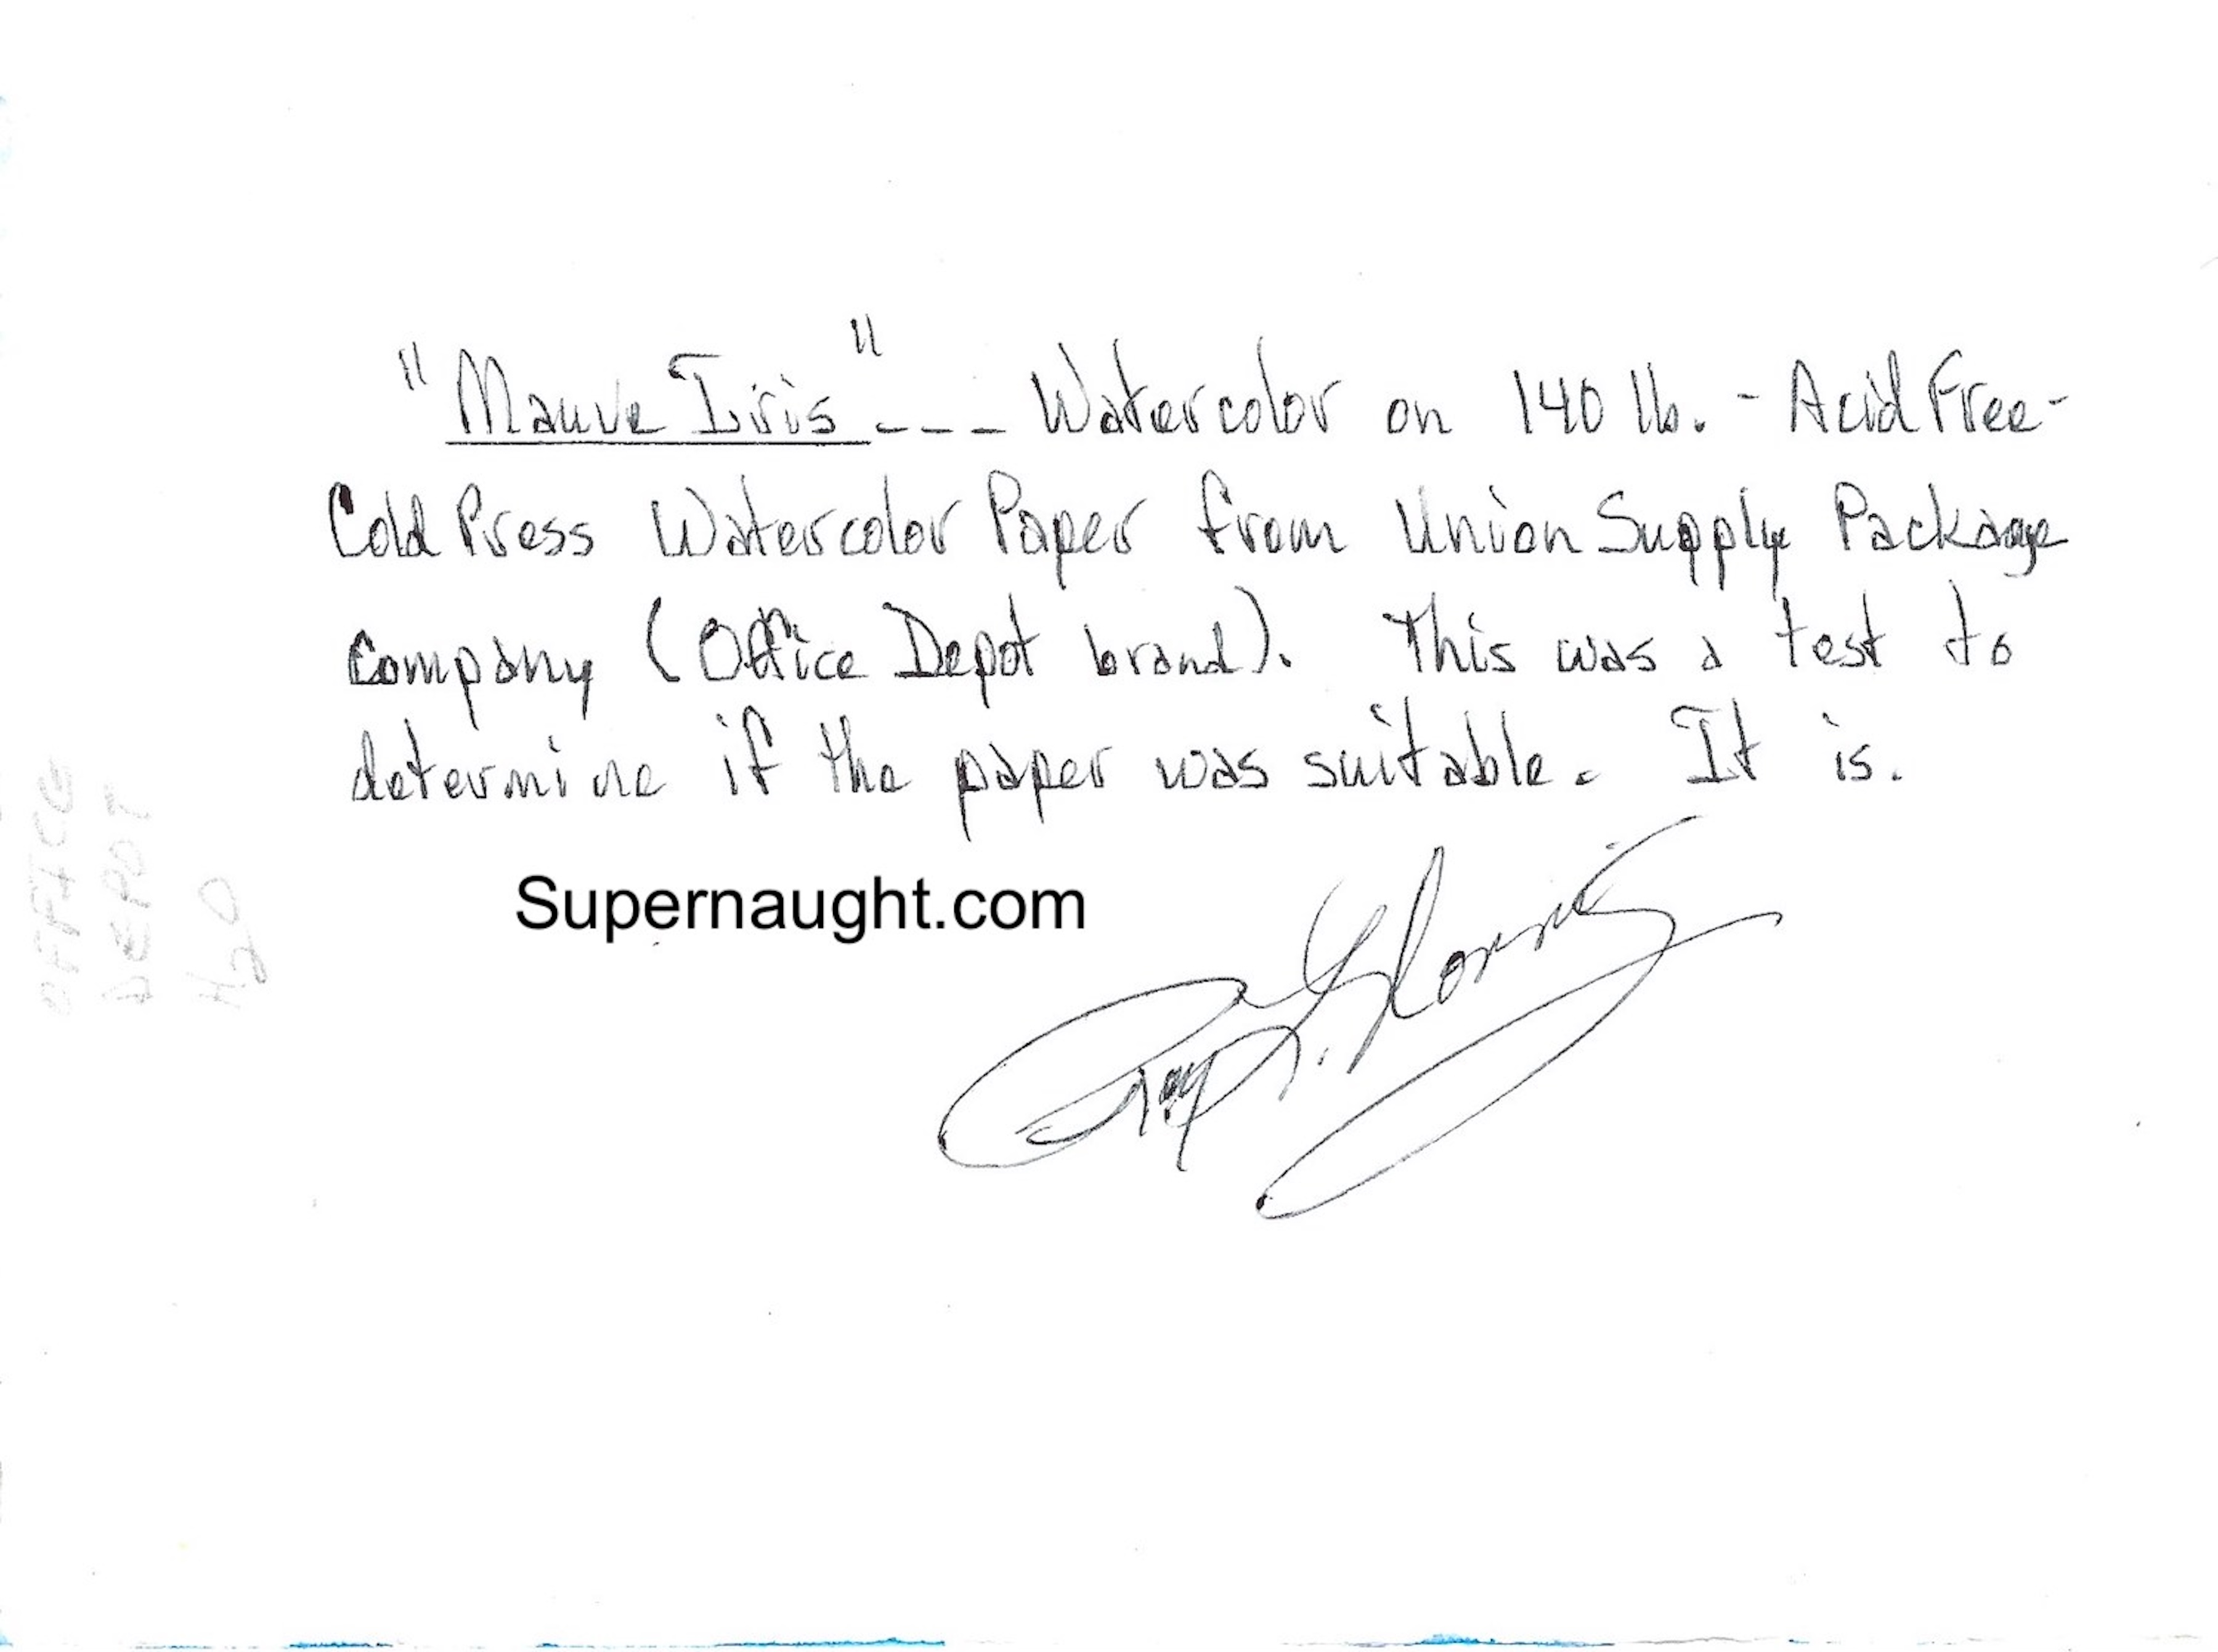 "Mauve Iris" --- Watercolor on 140 lb. - Acid Free -
Cold Press Watercolor Paper from Union Supply Package
Company (Office Depot brand). This was a test to
determine if the paper was suitable. It is.
Supernaught.com
OFFICE
DEPOT
H2O